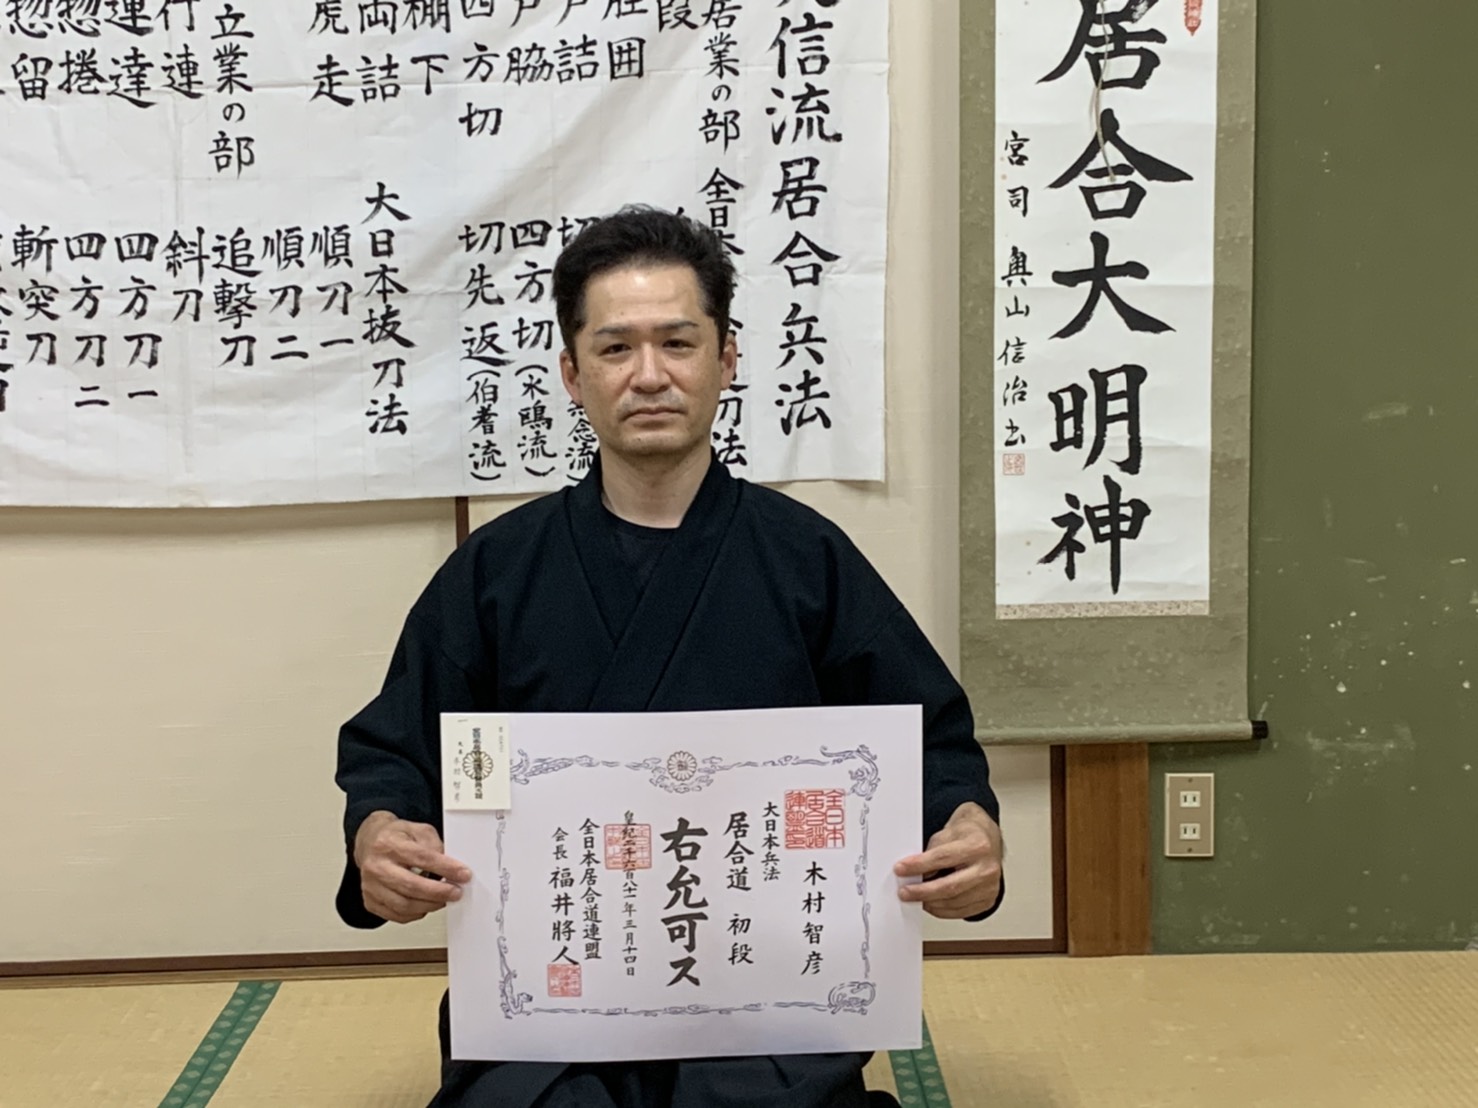 居合大明神
宮司 奥山信治書
信流居合兵法
居業の部
全日本
刀法
段
四方切
四方切(水鴎流)
切先返(伯耆流)
棚下
両詰
大日本抜刀法
虎走
順刀一
順刀二
立業の部
追撃刀
行連
斜刀
連達
四方刀一
惣捲
四方刀二
斬突刀
全日本
居合道
連盟印
木村智彦
大日本兵法
居合道 初段
右允可ス
皇紀二千六百八十一年三月十四日
全日本居合道連盟
会長 福井將人